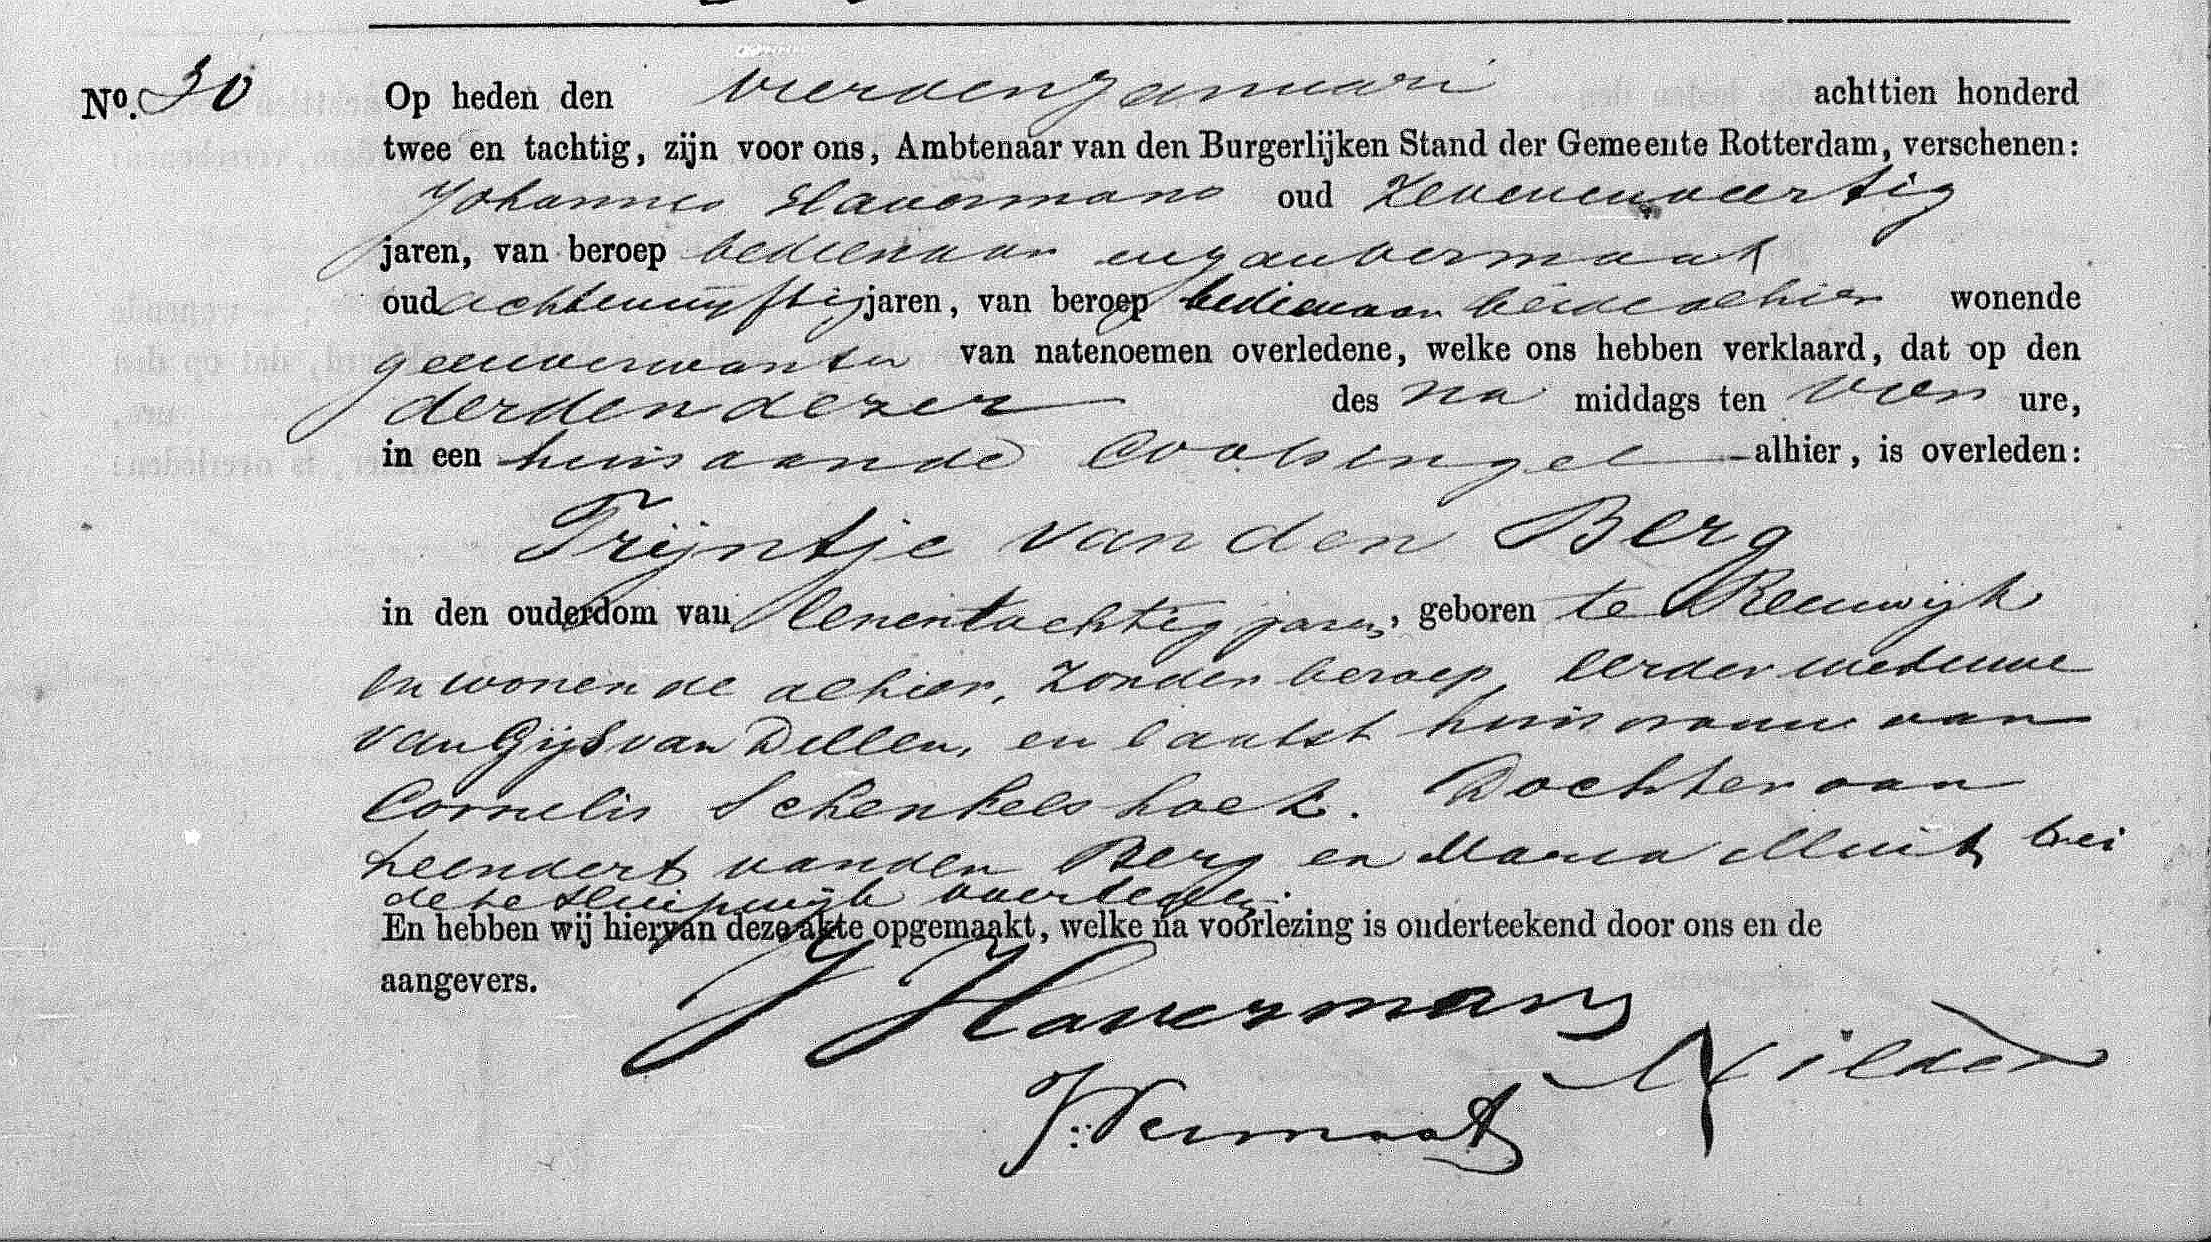 No. 30 Op heden den vierden Januari achttien honderd
twee en tachtig, zijn voor ons, Ambtenaar van den Burgerlijken Stand der Gemeente Rotterdam, verschenen:
Johannes Havermans oud Zevenenveertig
jaren, van beroep bedienaar en Jan Vermaat
oud achtenvyftig jaren, van beroep bedienaar beide alhier wonende
geen verwanten van natenoemen overledene, welke ons hebben verklaard, dat op den
derden dezer des na middags ten vier ure,
in een huis aan de Coolsingel alhier, is overleden:
Trijntje van den Berg
in den ouderdom van eenentachtig jaren, geboren te Reeuwijk
en wonende alhier, zonder beroep, eerder weduwe
van Gijs van Dillen, en laatst huisvrouw van
Cornelis Schenkelshoek. Dochter van
Leendert van den Berg en Maria Muit, bei
de te Sluipwijk overleden.
En hebben wij hiervan deze akte opgemaakt, welke na voorlezing is onderteekend door ons en de
aangevers.
J Havermans
J. Vermaat